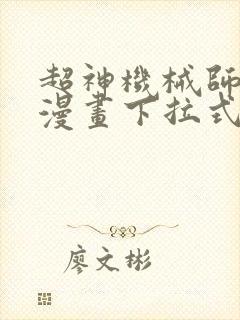 超神機械師
漫畫下拉式
廖文彬